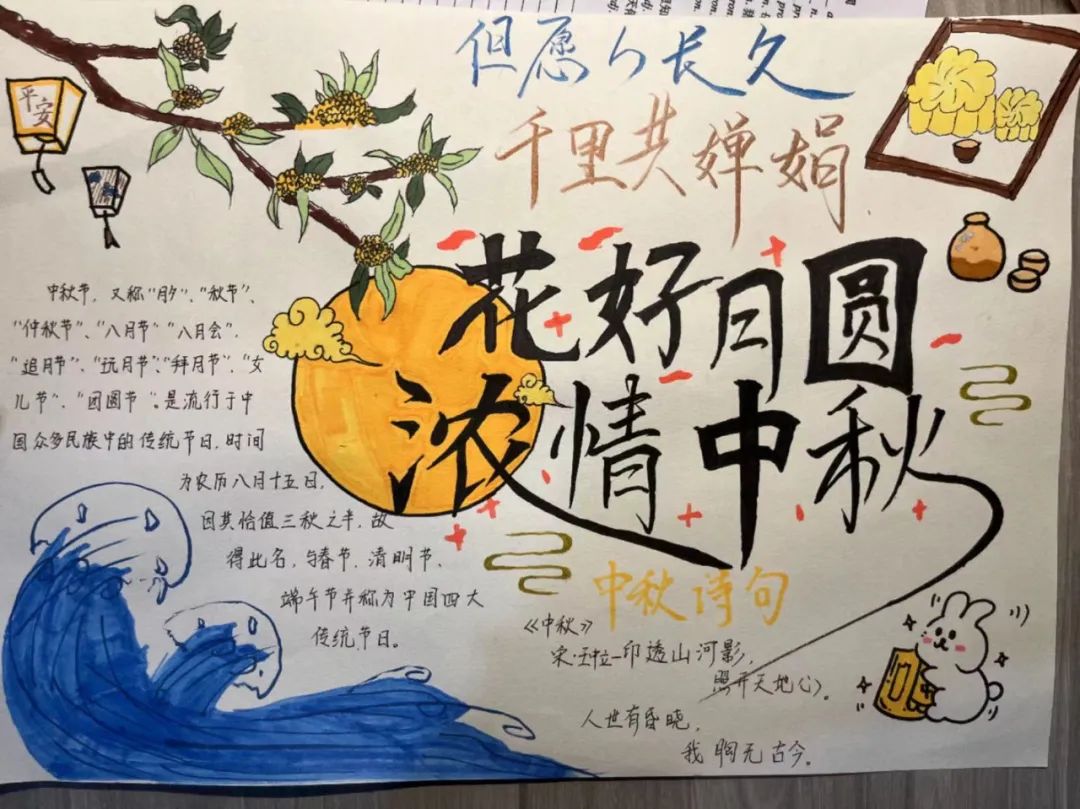 但愿人长久
千里共婵娟
平安
花好月圆
浓情中秋
中秋节，又称"月夕"、"秋节"、
"仲秋节"、"八月节""八月会"、
"追月节"、"玩月节"、"拜月节"、"女
儿节"、"团圆节"。是流行于中
国众多民族中的传统节日，时间
为农历八月十五日，
因其恰值三秋之半，故
得此名，与春节、清明节、
端午节并称为中国四大
传统节日。
中秋诗句
《中秋》
宋·王柏一印透山河影，
照开天地心。
人世有昏晓，
我胸无古今。